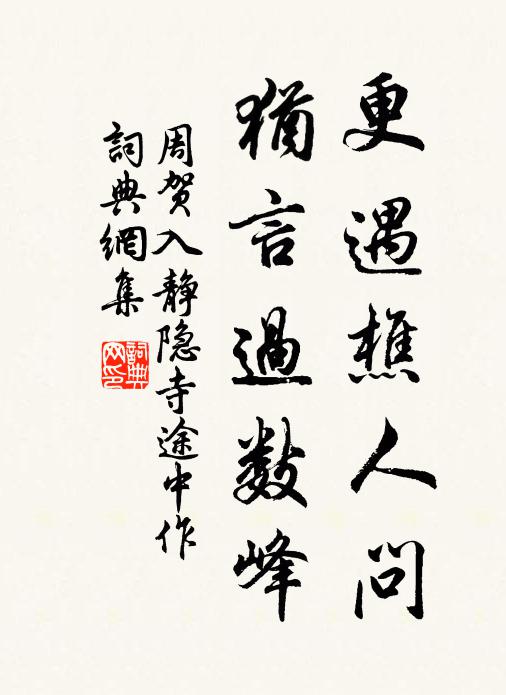 更遇樵人问
猶言過数峰
周贺入静隐寺途中作
詞典網集
詞典網印